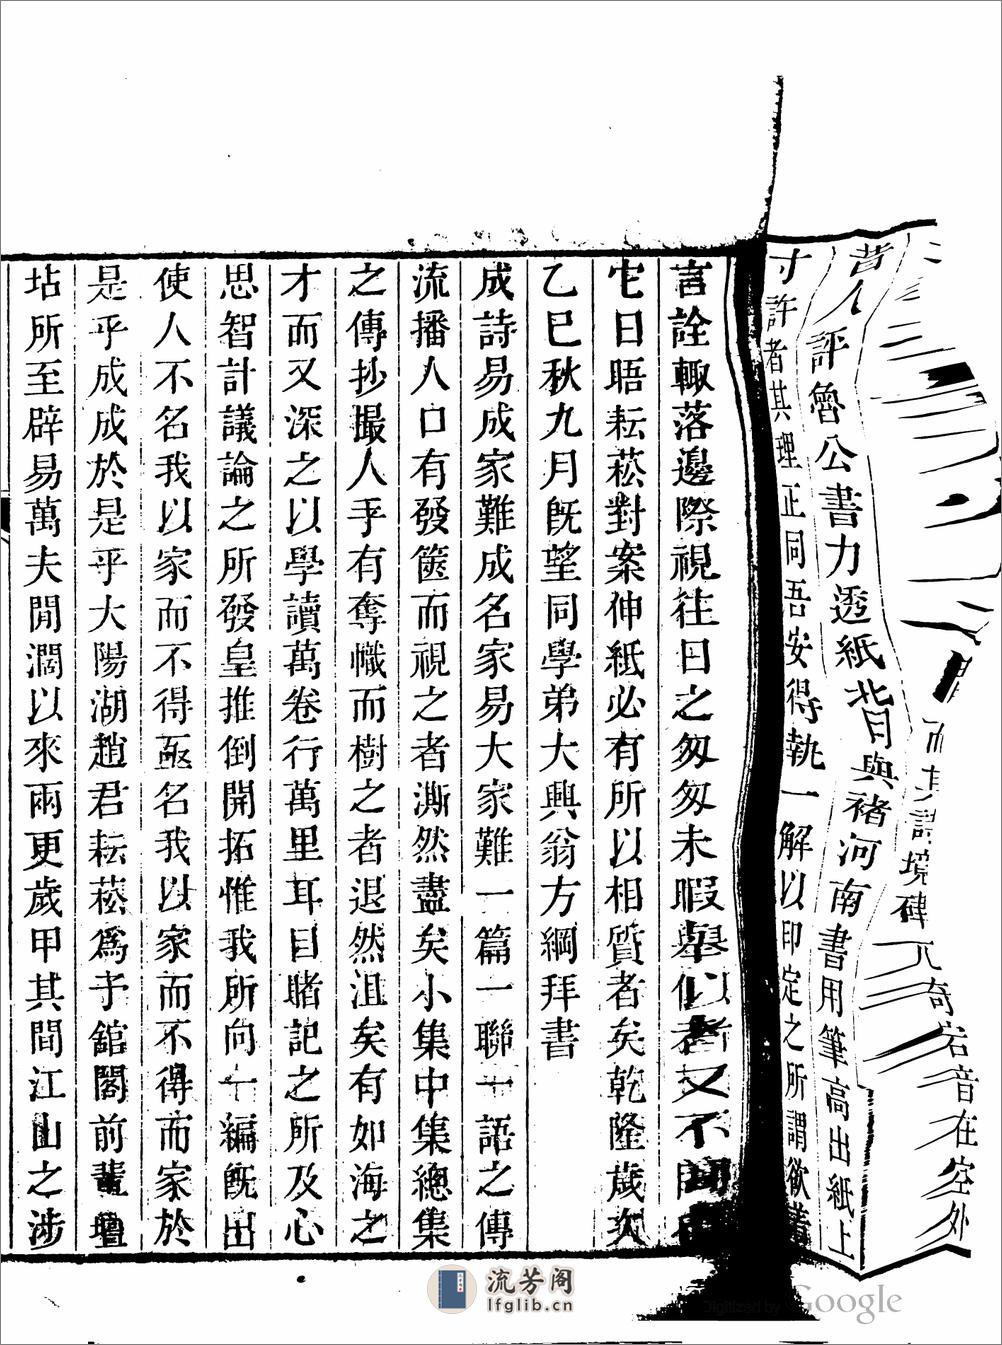 而其詩境碑兀奇岩音在空外
昔人評魯公書力透紙背與褚河南書用筆高出紙上
寸許者其理正同吾安得執一解以印定之所謂欲
言詮輙落邊際視往日之匆匆未暇舉似者又不
它日晤耘菘對案伸紙必有所以相質者矣乾隆歲次
乙巳秋九月旣望同學弟大興翁方綱拜書
成詩易成家難成名家易大家難一篇一聯一語之傳
流播人口有發篋而視之者澌然盡矣小集中集總集
之傳抄撮人乎有奪幟而樹之者退然沮矣有如海之
才而又深之以學讀萬卷行萬里耳目睹記之所及心
思智計議論之所發皇推倒開拓惟我所向一編旣出
使人不名我以家而不得亟名我以家而不得而家於
是乎成成於是乎大陽湖趙君耘菘爲予舘閣前輩壇
坫所至辟易萬夫閒濶以來雨更歲甲其間江山之涉
流芳阁
lfglib.cn
Digitized by Google